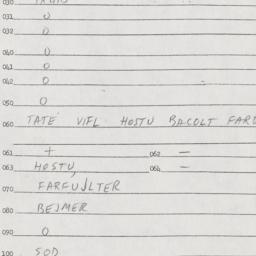 030
031 0
032 0
040 0
041 0
042 0
050 0
060 TATE VIFL HOSTU BACOLT FARD
061 + 062 —
063 HOSTU, 064 —
070 FARFUJLTER
080 BEJMER
090 0
100 SOD